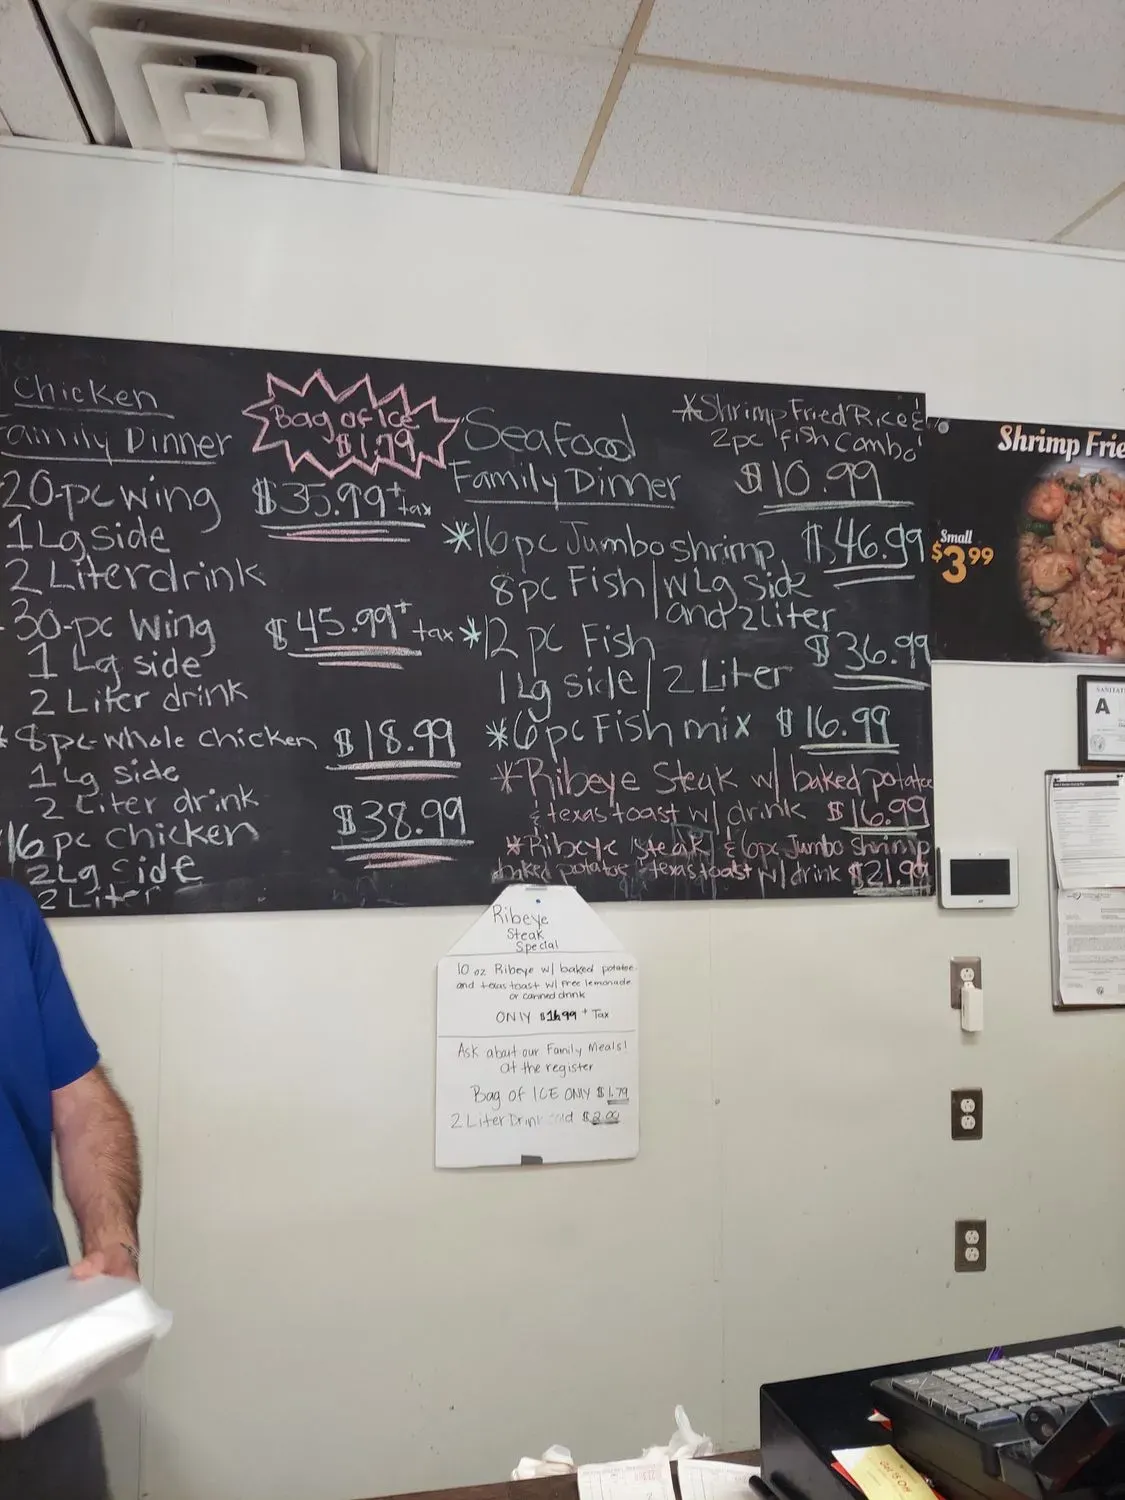 Chicken
Family Dinner
20-pc wing $35.99 + tax
1 Lg side
2 Liter drink
30-pc Wing $45.99 + tax
1 Lg side
2 Liter drink
*8pc whole chicken $18.99
1 Lg side
2 Liter drink
16 pc chicken $38.99
2 Lg side
2 Liter
Bag of Ice
$1.79
Seafood
Family Dinner
*Shrimp Fried Rice &
2pc fish combo
$10.99
*16pc Jumbo shrimp $46.99
8pc Fish / w Lg side
and 2 liter
*12 pc Fish $36.99
1 Lg side / 2 Liter
*6pc Fish mix $16.99
*Ribeye Steak w/ baked potatoe
& texas toast w/ drink $16.99
*Ribeye steak & 6pc Jumbo shrimp
baked potatoe texas toast w/ drink $21.99
Shrimp Frie
Small
$3.99
SANITAT
A
Ribeye
Steak
Special
10 oz Ribeye w/ baked potatoe
and texas toast w/ free lemonade
or canned drink
ONLY $16.99 + Tax
Ask about our Family Meals!
at the register
Bag of ICE ONLY $1.79
2 Liter Drink $2.00